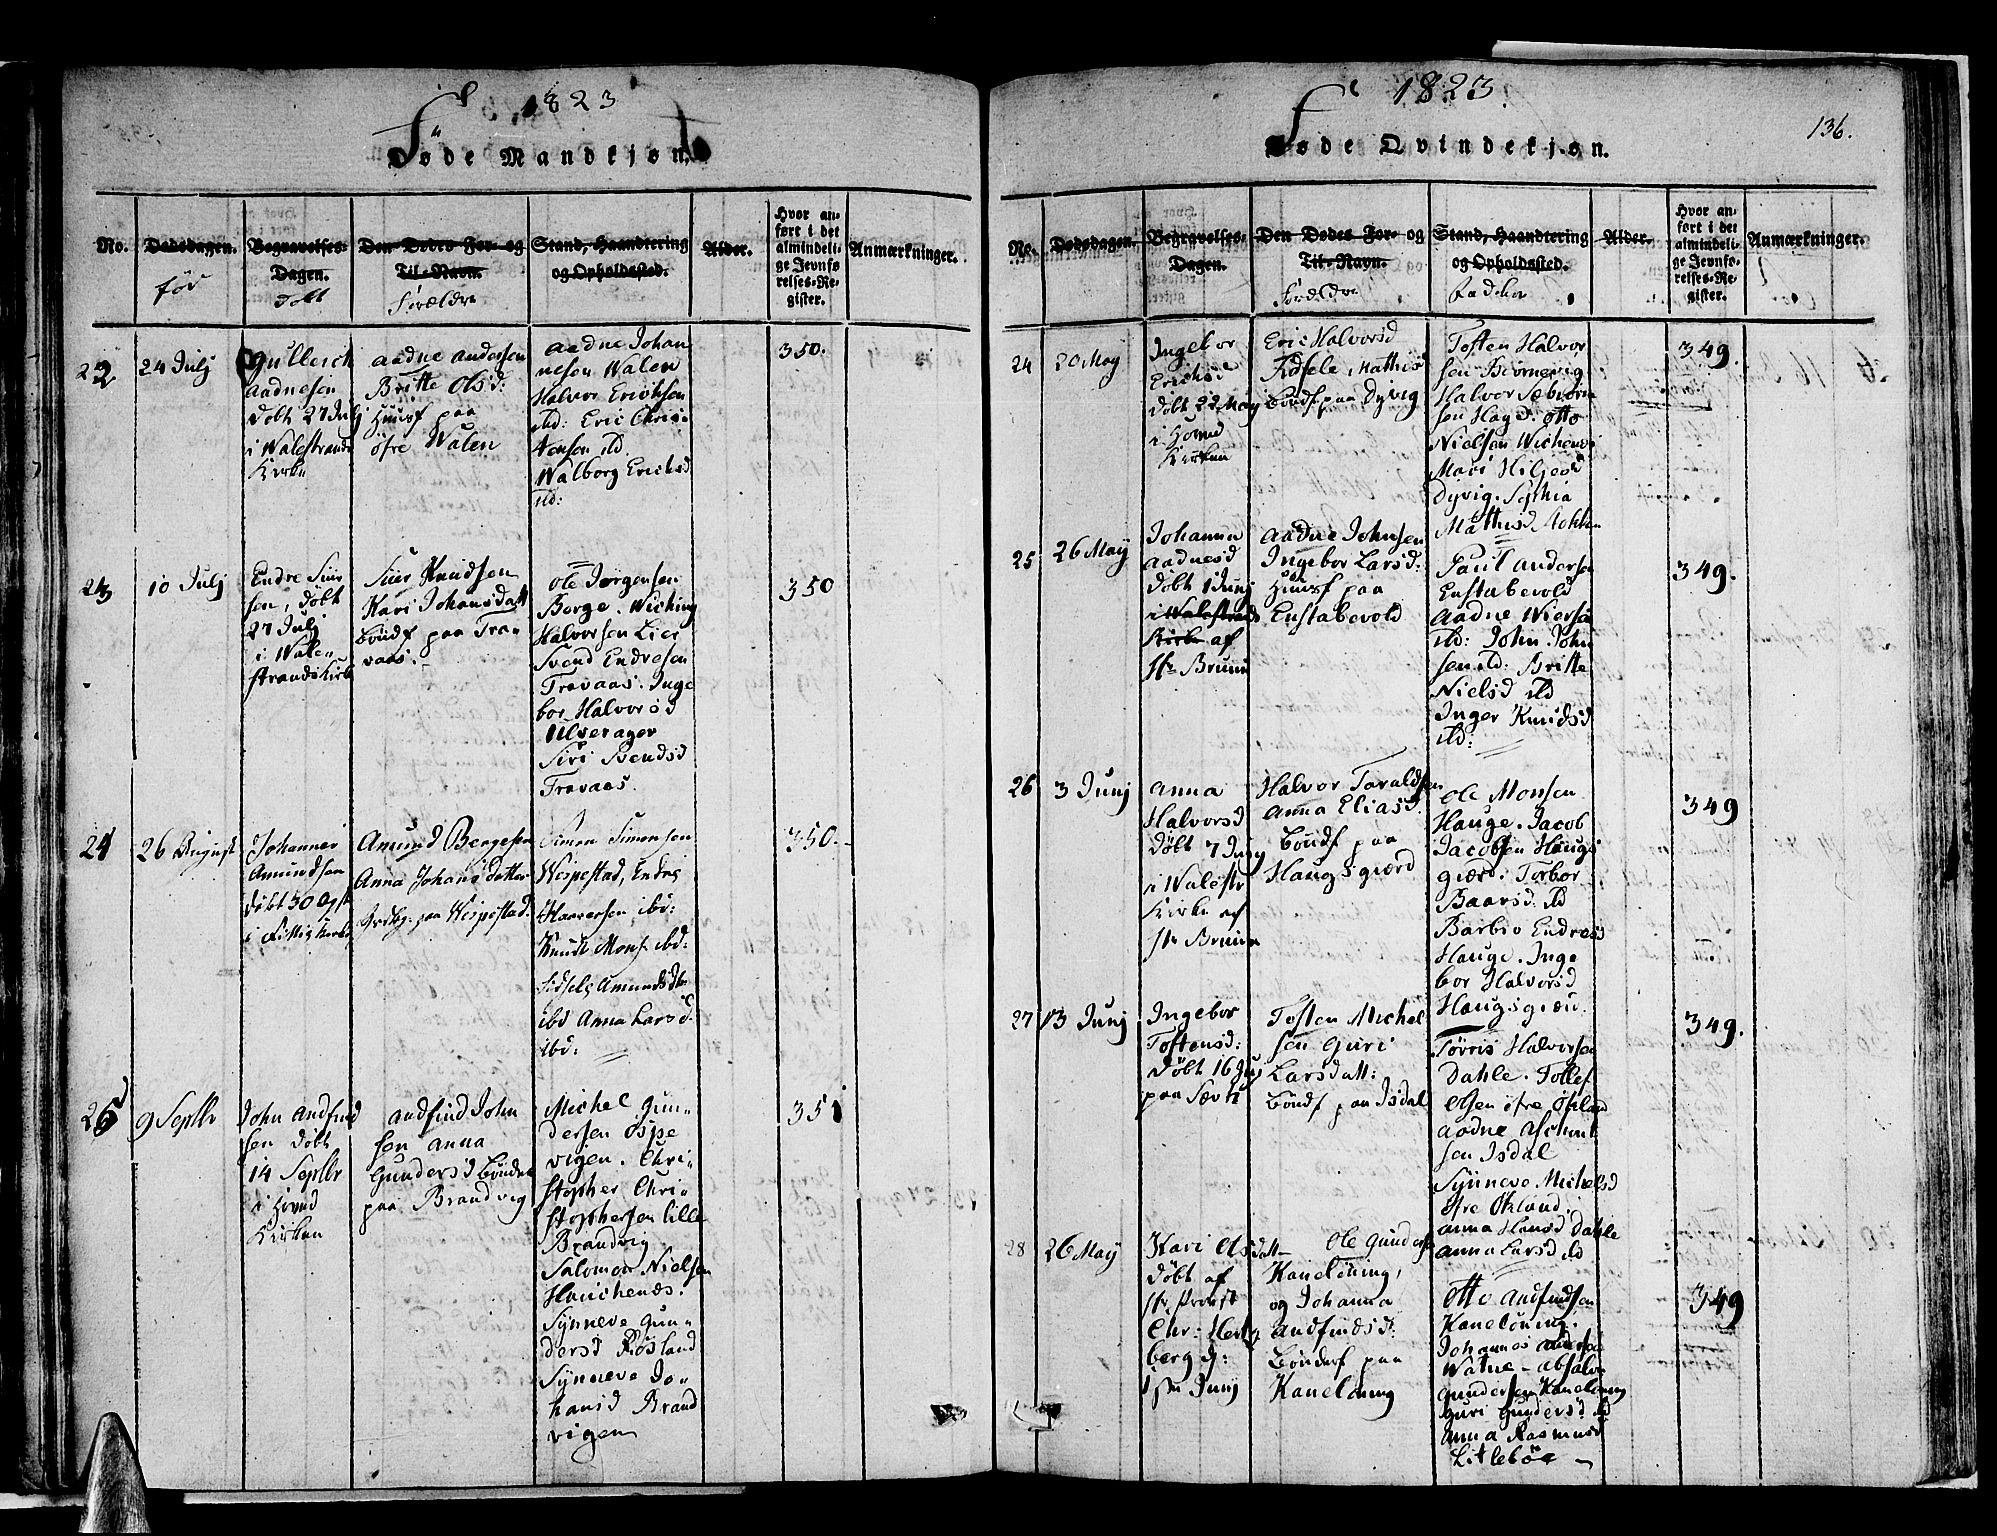 1823
Føde Mandkjøn.
No.
Dødsdagen.
født
Begravelses-
Dagen.
Døbt
Den Dødes For- og
Til-Navn.
Forældre
Stand, Haandtering
og Opholdssted.
Alder.
Hvor an-
ført i det
almindeli-
ge Jevnfø-
relses-Re-
gister.
Anmærkninger.
22
24 Julj
Gullerich
Aadnesen
Døbt 27 Julj
i Walestrands
Kirke
Aadne Andersen
Britte Olsd:
Huusf paa
øfre Walen
Aadne Johan
nesen Walen
Halvor Erichsen
ibd: Eric Chris-
tensen ibd.
Walborg Ericksd
ibd:
350.
23
10 Julj
Endre Siur
sen, døbt
27 Julj
i Wale-
strands Kirke
Siur Knudsen
Kari Johansdatt
Bøndf paa Tra-
vaas.
Ole Jørgensen
Borge. Wiching
Halvorsen Lier
Svend Endresen
Travaas. Inge
bor Halvorsd
Ulverager
Siri Bendsd
Travaas.
350
24
26 August
Johannes
Amundsen
Døbt 30 Agst
i Fittie Kirke
Amund Bergesen
Anna Johansdatter
paa Wespestad.
Simon Simonsen
Wespestad, Endre
Haaversen ibd:
Knudt Mons. ibd:
Sidsele Amundsdtr
ibd Anna Larsd.
ibd:
350.
25
9 Septbr
John Andfind
sen døbt
14 Septbr
i Hovud
Kirken
Andfind John
sen Anna
Gundersd Bøndf
paa Brandvig
Michel Gun-
dersen Ospe
vigen. Chri-
stopher Chri-
stophersen Lille
Brandvig
Salomon Nielsen
Hauchenæs.
Synneve Gun-
dersd Røsland
Synneve Jo-
hansd Brand
vigen
351
1823.
136.
Føde Qvindekjøn.
No.
Dødsdagen.
Begravelses-
Dagen.
Den Dødes For- og
Til-Navn.
Forældre
Stand, Haandtering
og Opholdssted.
Fadder
Alder.
Hvor an-
ført i det
almindeli-
ge Jevnfø-
relses-Re-
gister.
Anmærkninger.
24
20 May
Ingebor
Ericksd
døbt 22 May
i Hovud
Kirken
Eric Halvorsd
Sidsele Mathisd
Bøndf paa Dyvig
Tosten Halvor
sen Biørnevig
Halvor Sæbiørn
sen Hage: Otto
Nielsen Wichenes
Mari Hiljesd
Dyvig. Sythia
Mathisd
349.
25
26 May
Johanna
Aadnesd
Døbt 1 Junj
i Walestrands
Kirke af
Hr Bruun
Aadne Johnsen
Ingebor Larsd:
Huusf paa
Enstabevold
Paul Andersen
Enstabevold
Aadne Wiersen
ibd: John John
sen ibd: Britte
Nielsd ibd
Inger Knudsd
ibd:
349.
26
3 Junj
Anna
Halvorsd
Døbt 7 Junj
i Walestr
Kirke af
Hr Bruun
Halvor Taraldsen
Anna Eliasd
Bøndf paa
Haugsgiærd
Ole Monsen
Hauge. Jacob
Jacobsen Haugs
giærd. Torbor
Baarsd: ibd
Barbro Endresd
Hauge. Inge
bor Halvorsd
Haugsgiærd.
349
27
13 Junj
Ingebor
Tostensd:
Døbt 16 Junj
paa Særh
Tosten Michel
sen Guri
Larsdatt:
Bøndf paa Isdal
Tørris Halvorsen
Dahle. Tollef
Olsen øfre Økland
Aadne Asmul
sen Isdal
Synneve Michelsd
øfre Økland.
Anna Hansd Dahle
Anna Larsd ibd
349.
28
26 May
Kari Olsdatt
Døbt af
Hr Provst
Chr: Hertz
berg d:
1ste Junj
Ole Gunders
Kaneløning,
og Johanna
Andfindsd:
Bønderf paa
Kaneløning
Otto Andfindsen
Kaneløning.
Johannes Anders
Watne - Absalon
Gundersen Kaneløning
Guri Gundersd ibd
Anna Rasmusd
Litlebøe
349